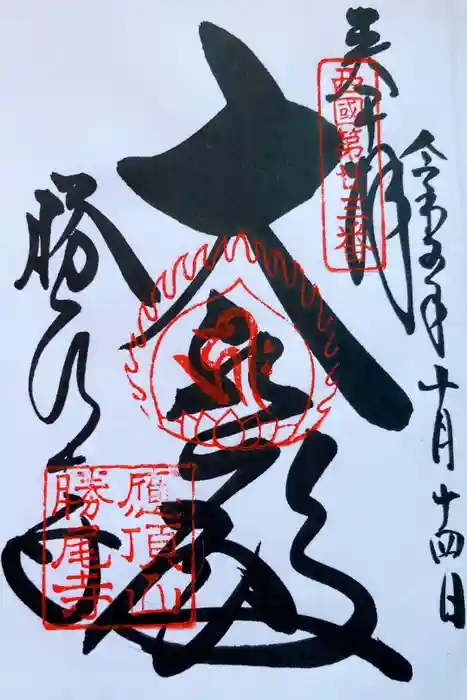 奉拝
西國第廿三番
令和五年十月十四日
大悲殿
勝尾寺
應頂山
勝尾寺